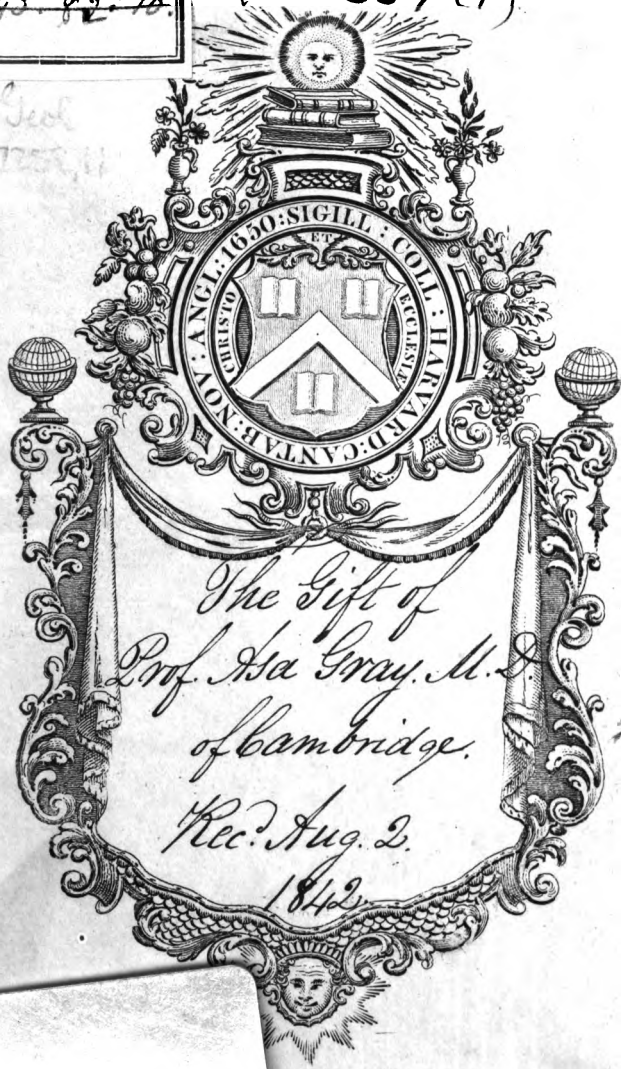 Geol
SIGILL : COLL : HARVARD : CANTAB : NOV : ANGL : 1650 :
CHRISTO ET ECCLESIÆ
The Gift of
Prof. Asa Gray. M.D.
of Cambridge.
Rec.d Aug. 2.
1842.